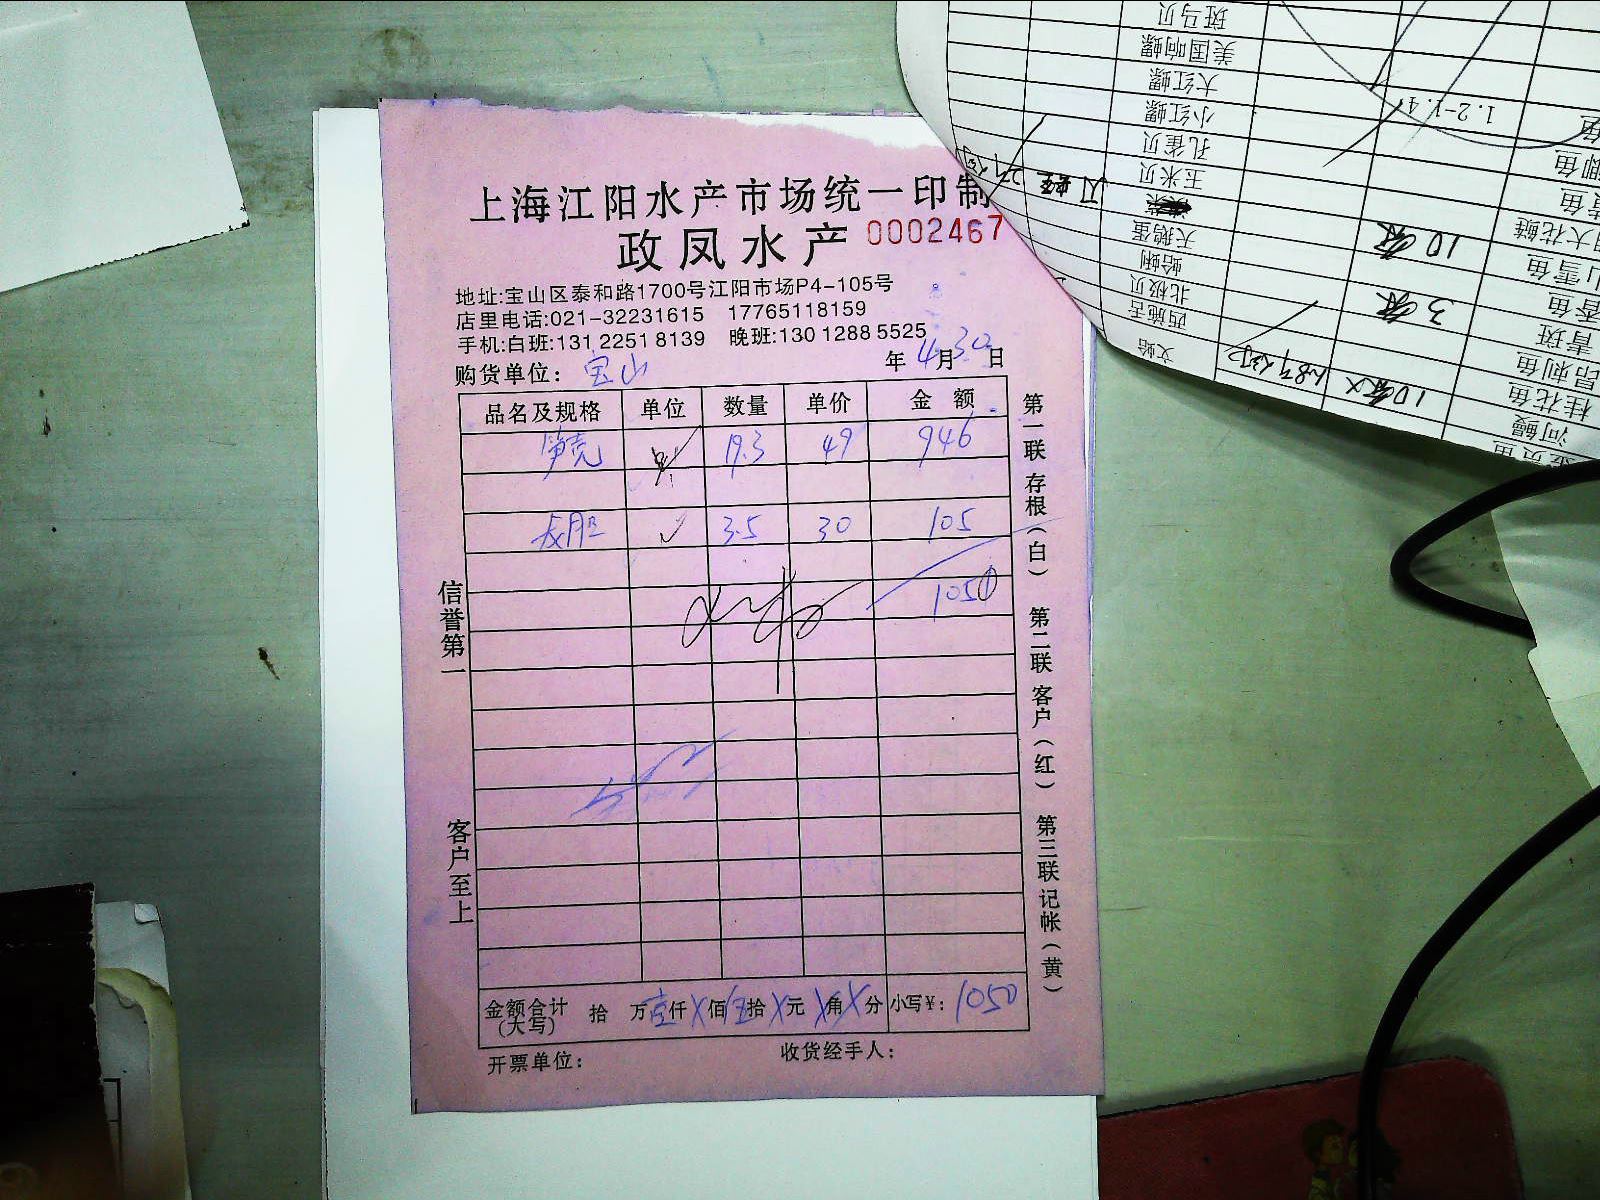 上海江阳水产市场统一印制
政凤水产 0002467
地址:宝山区泰和路1700号江阳市场P4-105号
店里电话:021-32231615 17765118159
手机:白班:131 2251 8139 晚班:130 1288 5525
购货单位: 宝山 年 4月30日
品名及规格 单位 数量 单价 金额
笋壳 19.3 49 946
3.5 30 105
1051
金额合计(大写) 拾 万壹仟X佰伍拾X元X角X分 小写¥: 1050
开票单位: 收货经手人:
信誉第一
客户至上
第一联 存根(白) 第二联 客户(红) 第三联 记帐(黄)
斑马贝
美国响螺
大红螺
小红螺
孔雀贝
玉米贝
天鹅蛋
蛤蜊
北极贝
西施舌
文蛤
1.2-1.4
鱼
鲫鱼
大花鲢 10条
雪鱼
香鱼 3条
青斑
昂刺鱼
桂花鱼 10条
河鳗